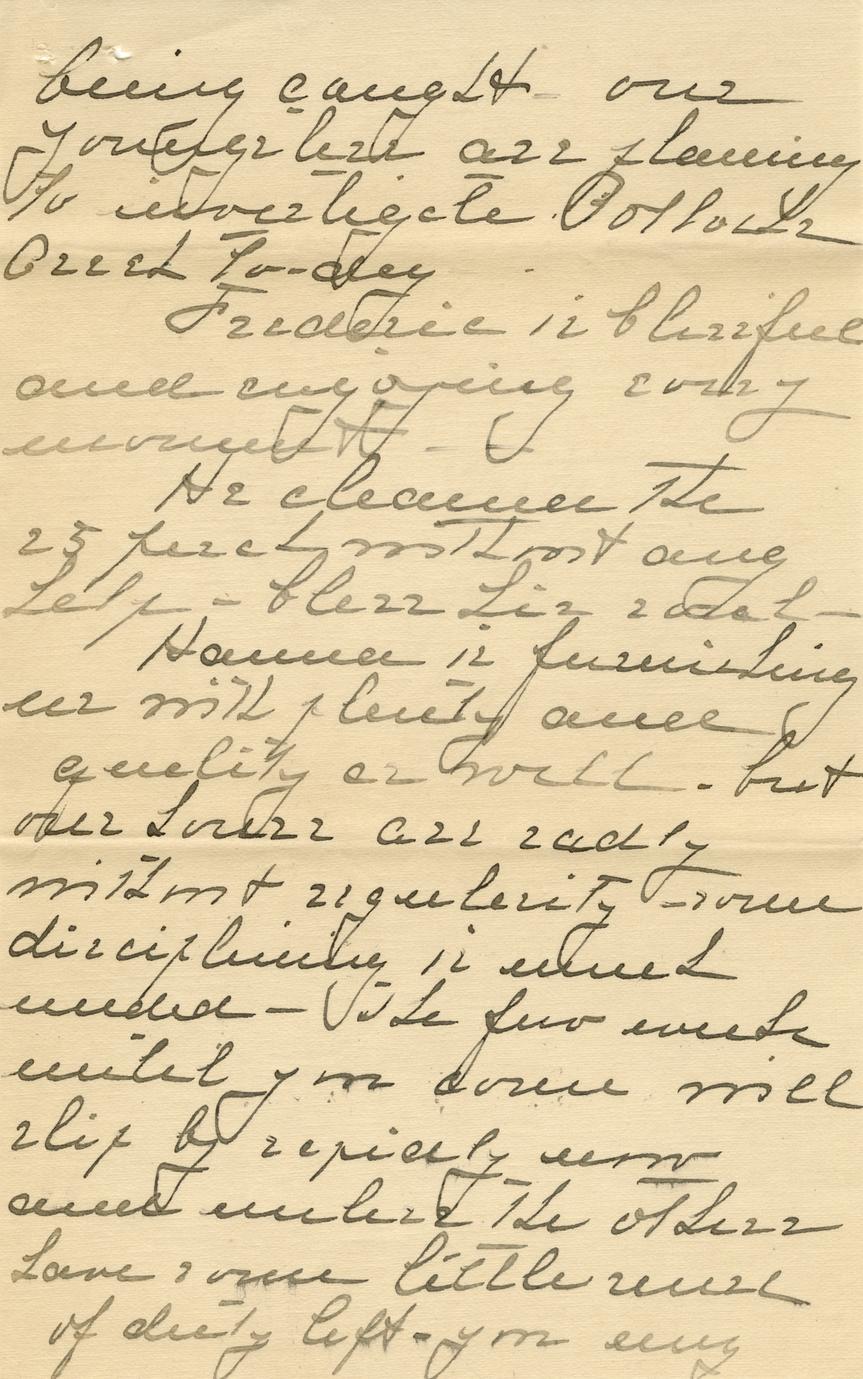 being caught - our
youngsters are planing
to investigate
Creek to-day
Frederic is blissful
and enjoying every
moment -
He cleaned the
25 perch without any
help - bless his soul -
Hanna is furnishing
us with plenty and
quality as well - but
our hours are sadly
without regularity - some
disciplining is much
needed - The few weeks
until you come will
slip by rapidly now
and unless the others
have some little sense
of duty left - you may